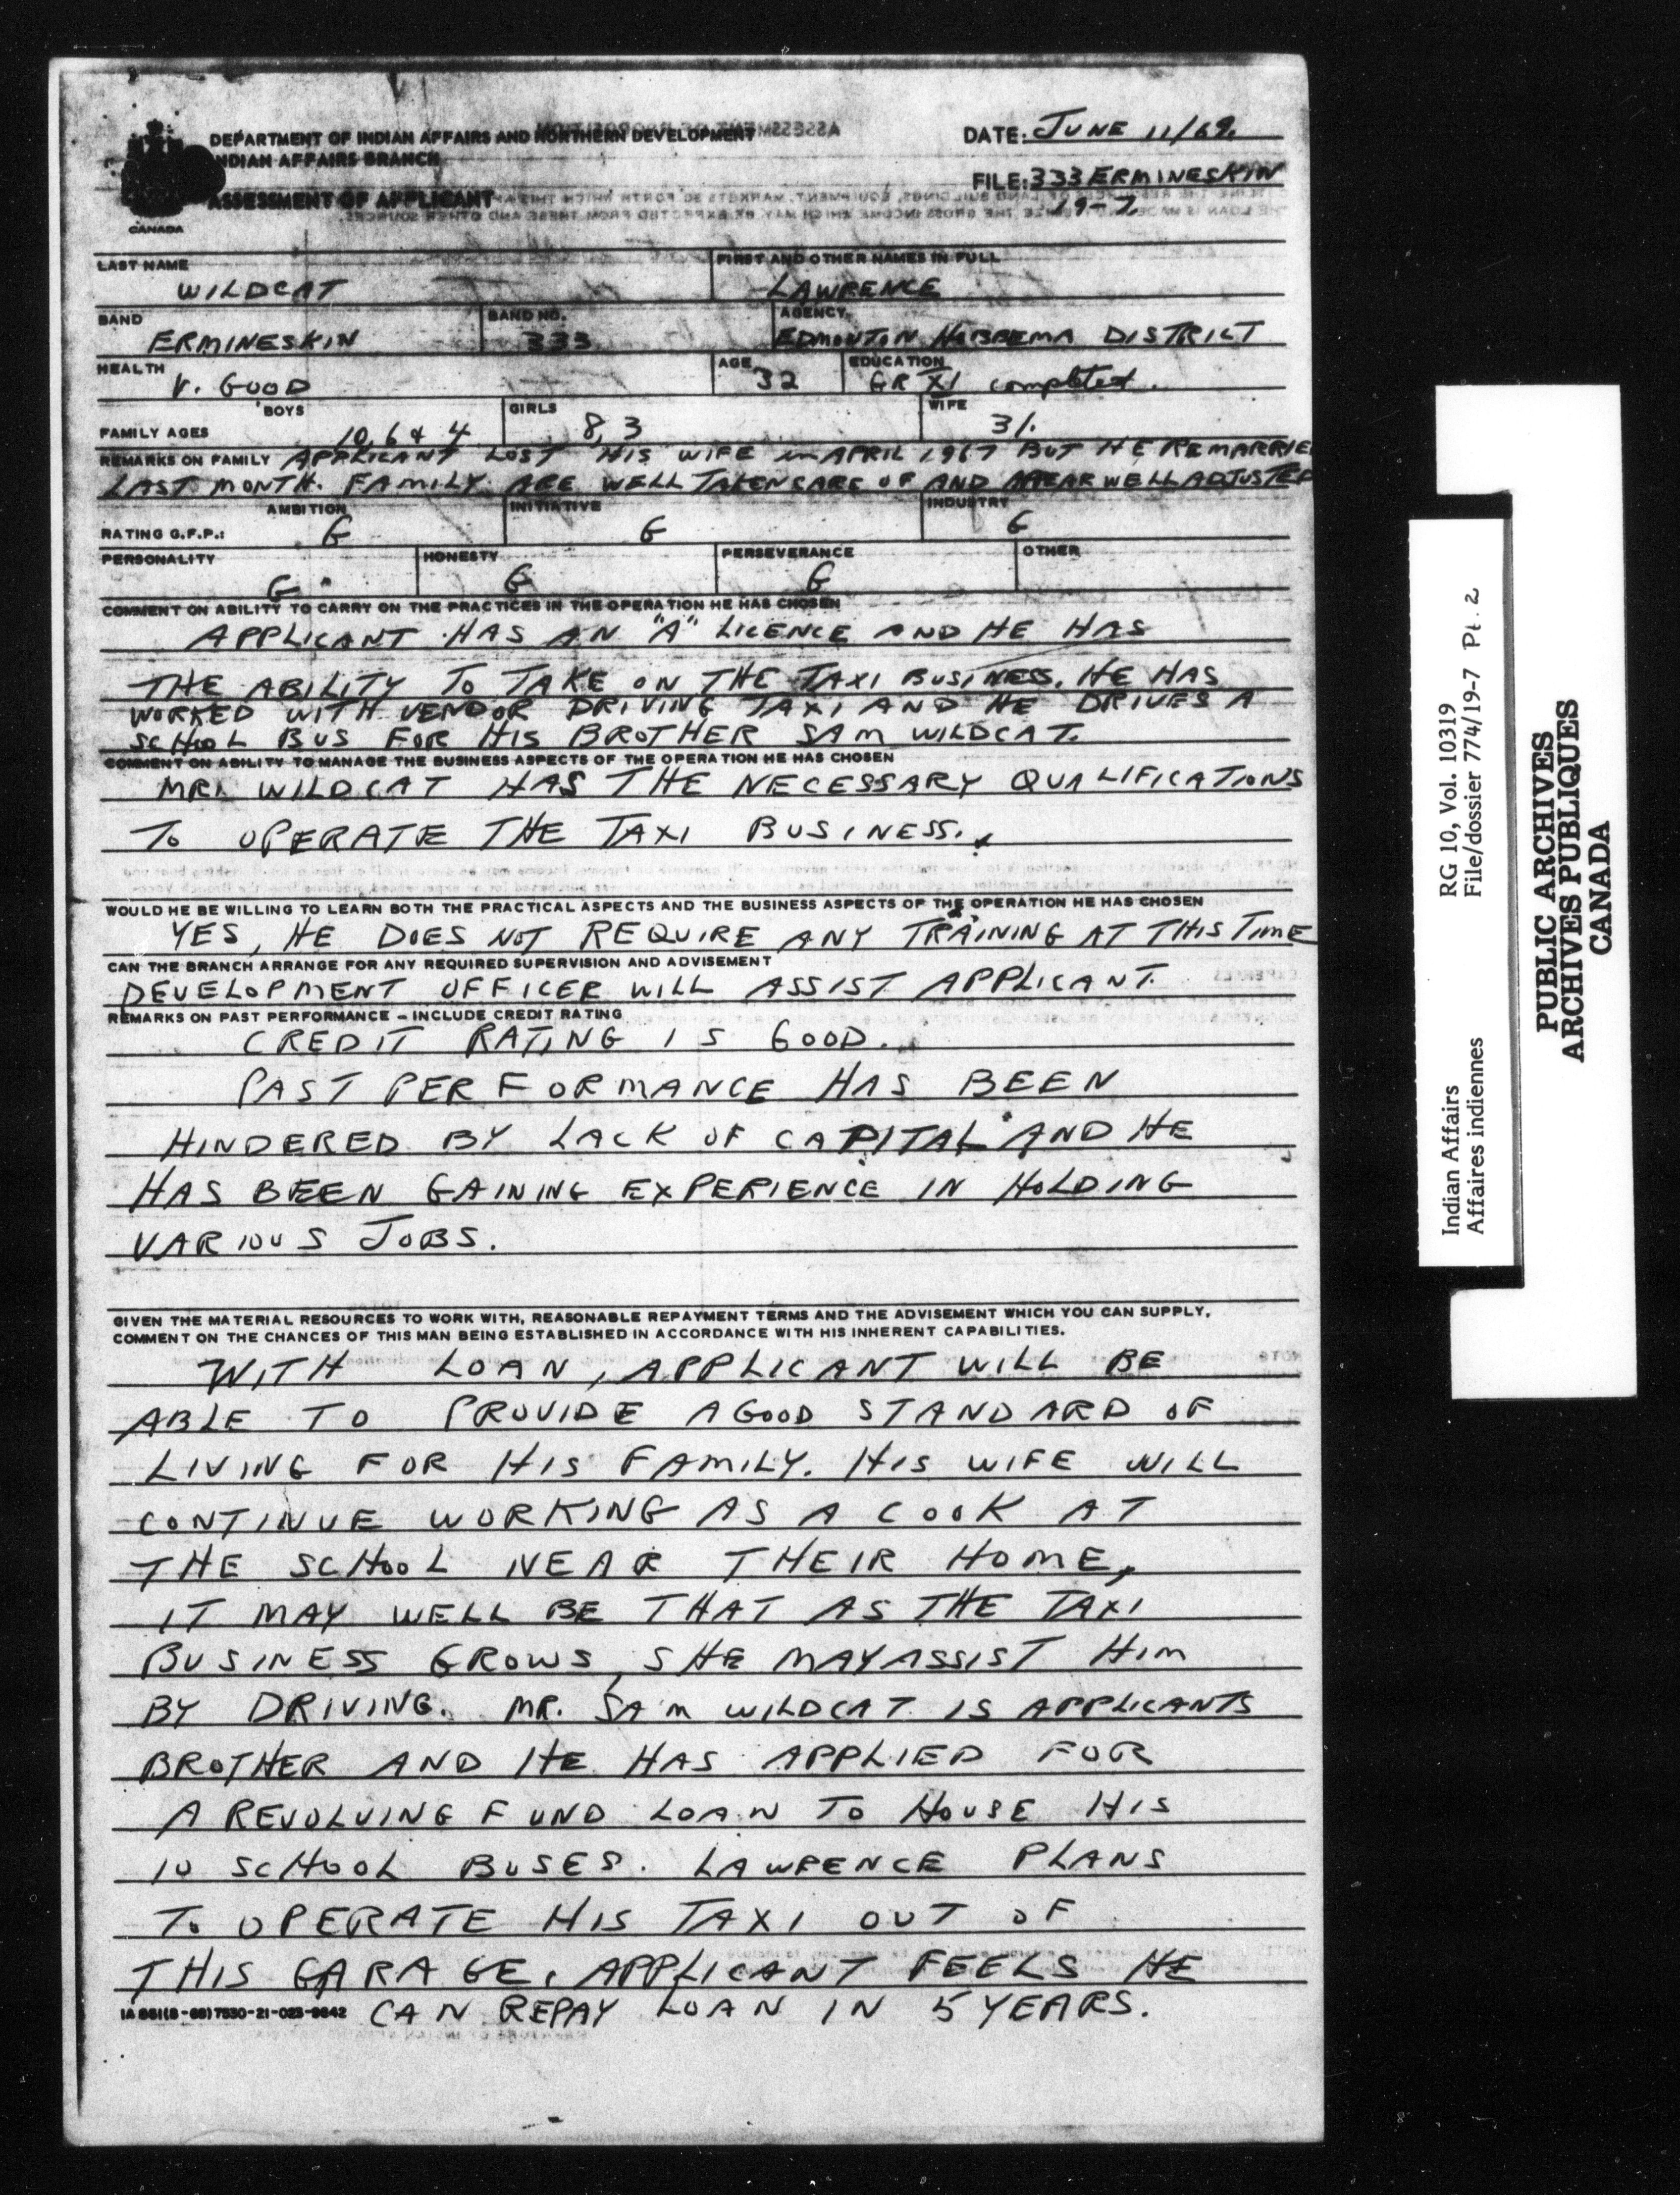 DEPARTMENT OF INDIAN AFFAIRS AND NORTHERN DEVELOPMENT
INDIAN AFFAIRS BRANCH
ASSESSMENT OF APPLICANT
CANADA
DATE: JUNE 11/69.
FILE: 333 ERMINESKIN
19-7
LAST NAME
WILDCAT
FIRST AND OTHER NAMES IN FULL
LAWRENCE
BAND
ERMINESKIN
BAND NO.
333
AGENCY
EDMONTON HOBBEMA DISTRICT
HEALTH
V. GOOD
AGE
32
EDUCATION
GR XI completed.
FAMILY AGES
BOYS
10, 6 & 4
GIRLS
8, 3
WIFE
31.
REMARKS ON FAMILY APPLICANT LOST HIS WIFE in APRIL 1967 BUT HE REMARRIED
LAST MONTH. FAMILY ARE WELL TAKEN CARE OF AND APPEAR WELL ADJUSTED
RATING G.F.P.:
AMBITION
G
INITIATIVE
G
INDUSTRY
G
PERSONALITY
G
HONESTY
G
PERSEVERANCE
G
OTHER
COMMENT ON ABILITY TO CARRY ON THE PRACTICES IN THE OPERATION HE HAS CHOSEN
APPLICANT HAS AN "A" LICENCE AND HE HAS
THE ABILITY TO TAKE ON THE TAXI BUSINESS. HE HAS
WORKED WITH VENDOR DRIVING TAXI AND HE DRIVES A
SCHOOL BUS FOR HIS BROTHER SAM WILDCAT.
COMMENT ON ABILITY TO MANAGE THE BUSINESS ASPECTS OF THE OPERATION HE HAS CHOSEN
MR. WILDCAT HAS THE NECESSARY QUALIFICATIONS
TO OPERATE THE TAXI BUSINESS.
WOULD HE BE WILLING TO LEARN BOTH THE PRACTICAL ASPECTS AND THE BUSINESS ASPECTS OF THE OPERATION HE HAS CHOSEN
YES, HE DOES NOT REQUIRE ANY TRAINING AT THIS TIME
CAN THE BRANCH ARRANGE FOR ANY REQUIRED SUPERVISION AND ADVISEMENT
DEVELOPMENT OFFICER WILL ASSIST APPLICANT.
REMARKS ON PAST PERFORMANCE – INCLUDE CREDIT RATING
CREDIT RATING IS GOOD.
PAST PERFORMANCE HAS BEEN
HINDERED BY LACK OF CAPITAL AND HE
HAS BEEN GAINING EXPERIENCE IN HOLDING
VARIOUS JOBS.
GIVEN THE MATERIAL RESOURCES TO WORK WITH, REASONABLE REPAYMENT TERMS AND THE ADVISEMENT WHICH YOU CAN SUPPLY,
COMMENT ON THE CHANCES OF THIS MAN BEING ESTABLISHED IN ACCORDANCE WITH HIS INHERENT CAPABILITIES.
WITH LOAN, APPLICANT WILL BE
ABLE TO PROVIDE A GOOD STANDARD OF
LIVING FOR HIS FAMILY. HIS WIFE WILL
CONTINUE WORKING AS A COOK AT
THE SCHOOL NEAR THEIR HOME,
IT MAY WELL BE THAT AS THE TAXI
BUSINESS GROWS, SHE MAY ASSIST HIM
BY DRIVING. MR. SAM WILDCAT IS APPLICANTS
BROTHER AND HE HAS APPLIED FOR
A REVOLVING FUND LOAN TO HOUSE HIS
10 SCHOOL BUSES. LAWRENCE PLANS
TO OPERATE HIS TAXI OUT OF
THIS GARAGE. APPLICANT FEELS HE
IA 661(8-68) 7530-21-023-9642 CAN REPAY LOAN IN 5 YEARS.
Indian Affairs RG 10, Vol. 10319
Affaires indiennes File/dossier 774/19-7 Pt. 2
PUBLIC ARCHIVES
ARCHIVES PUBLIQUES
CANADA